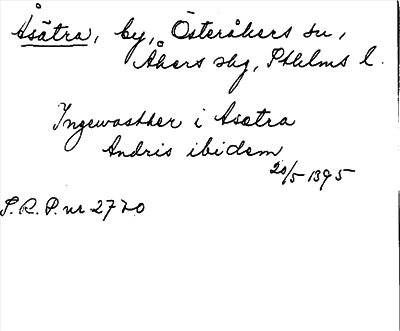 Åsätra, by, Österåkers sn,
Åkers skg, Sthlms l.
Ingewasther i Asætra
Andris ibidem
20/5 1395
S.R.P. nr 2770